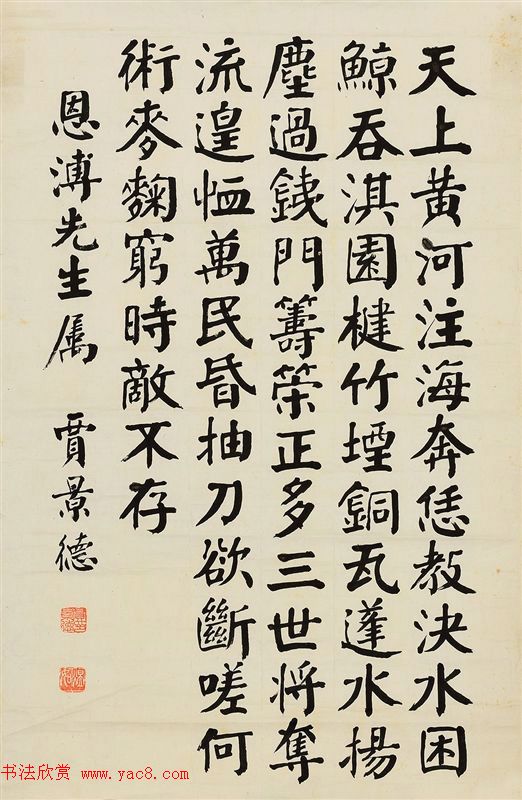 天上黄河注海奔恁教決水困
鯨吞淇園楗竹堙銅瓦蓬水揚
塵過銕門籌策正多三世將奪
流遑恤萬民昏抽刀欲斷嗟何
術麥麴窮時敵不存
恩溥先生属 賈景德
书法欣赏 www.yac8.com